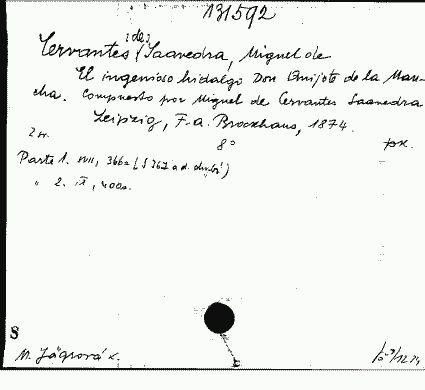 131592
Cervantes [de] Saavedra, Miguel de
El ingenioso hidalgo Don Quijote de la Man-
cha. Compuesto por Miguel de Cervantes Saavedra
Leipzig, F. A. Brockhaus, 1874.
2 sv.
8° px.
Parte 1. XVII, 366s
" 2. 400s.
S
M. Jägrová